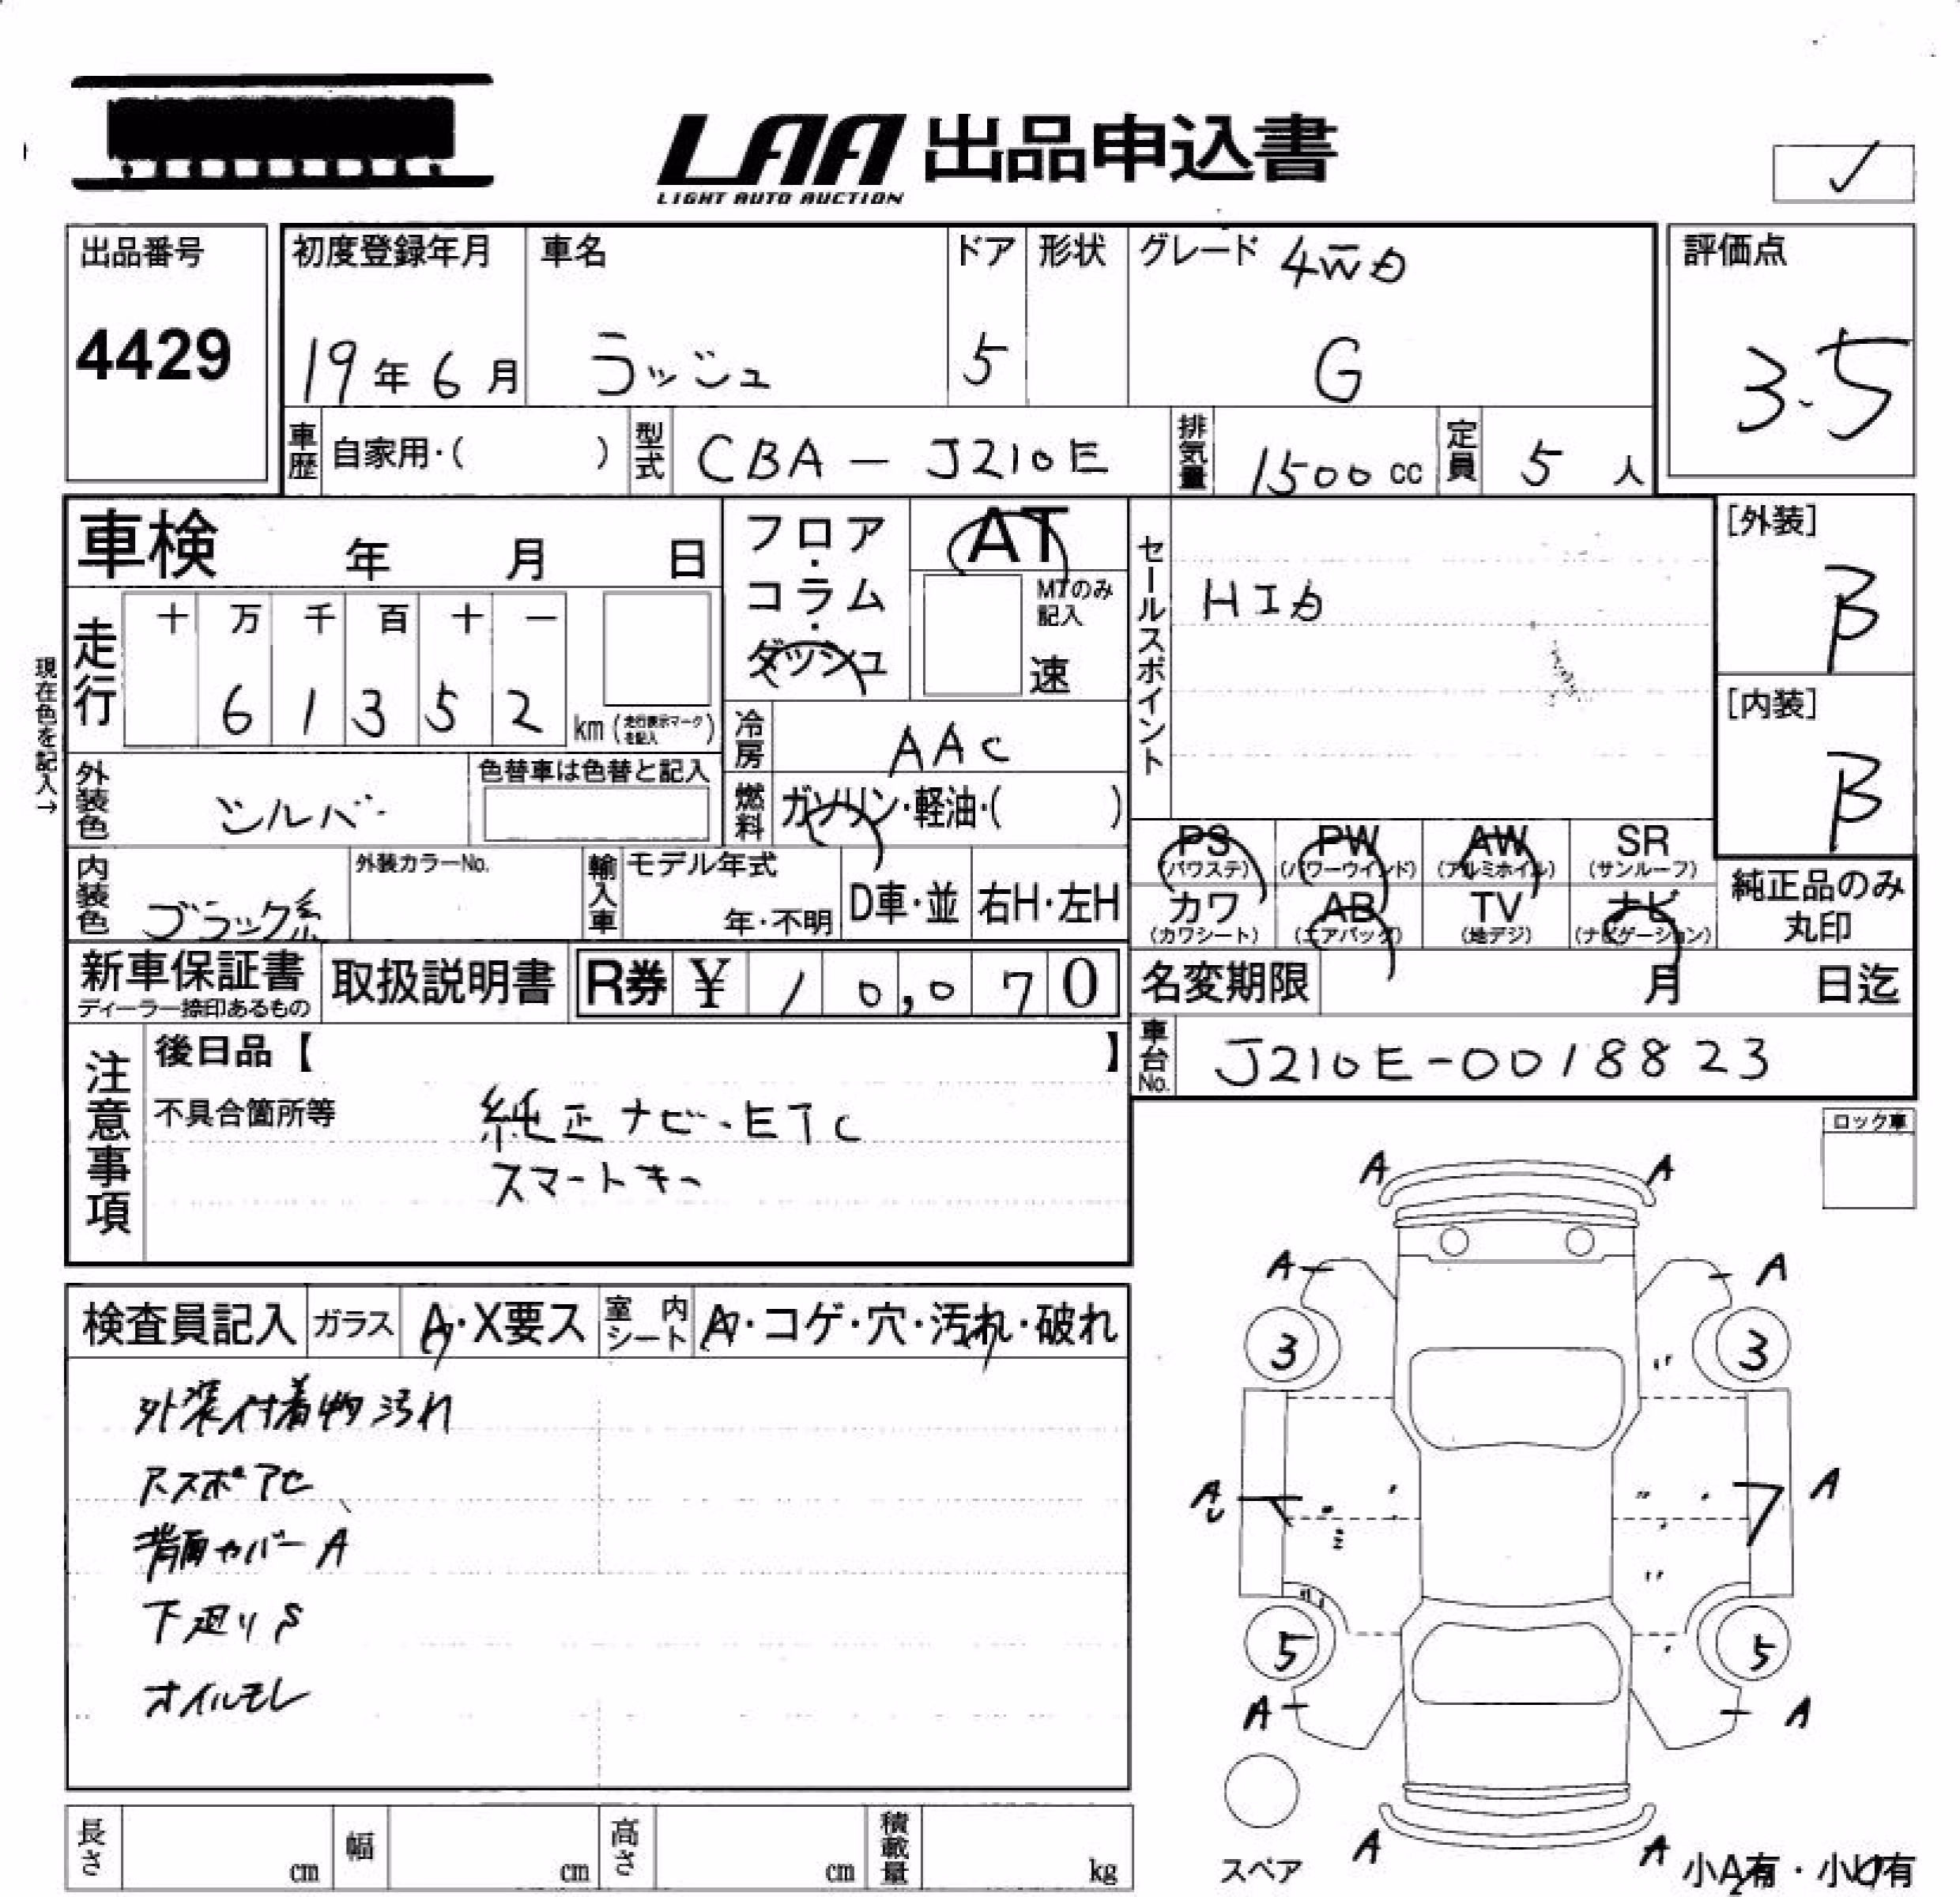 LAA 出品申込書
LIGHT AUTO AUCTION
出品番号
4429
初度登録年月
19年6月
車名
ラッシュ
ドア
5
形状
グレード 4WD
G
評価点
3.5
車歴 自家用・( )
型式 CBA-J210E
排気量 1500cc
定員 5人
車検 年 月 日
フロア・コラム・ダッシュ
AT
MTのみ記入
速
セールスポイント
HID
[外装]
B
[内装]
B
現在色を記入→
走行
十 万 千 百 十 一
6 1 3 5 2
km(走行表示マークを記入)
冷房 AAC
燃料 ガソリン・軽油・( )
外装色 シルバー
色替車は色替と記入
内装色 ブラック系
外装カラーNo.
輸入車
モデル年式
年・不明
D車・並
右H・左H
PS(パワステ) PW(パワーウインド) AW(アルミホイル) SR(サンルーフ)
カワ(カワシート) AB(エアバッグ) TV(地デジ) ナビ(ナビゲーション)
純正品のみ丸印
新車保証書
ディーラー捺印あるもの
取扱説明書
R券 ¥ 10,070
名変期限 月 日迄
車台No. J210E-0018823
注意事項
後日品【 】
不具合箇所等
純正ナビ・ETC
スマートキー
ロック車
検査員記入
ガラス A・X要ス
室内シート A・コゲ・穴・汚れ・破れ
外装付着物汚れ
背面カバーA
下廻りS
オイルモレ
A A
A A
3 3
A A
5 5
A A
A A
スペア
小A有・小U有
長さ cm
幅 cm
高さ cm
積載量 kg